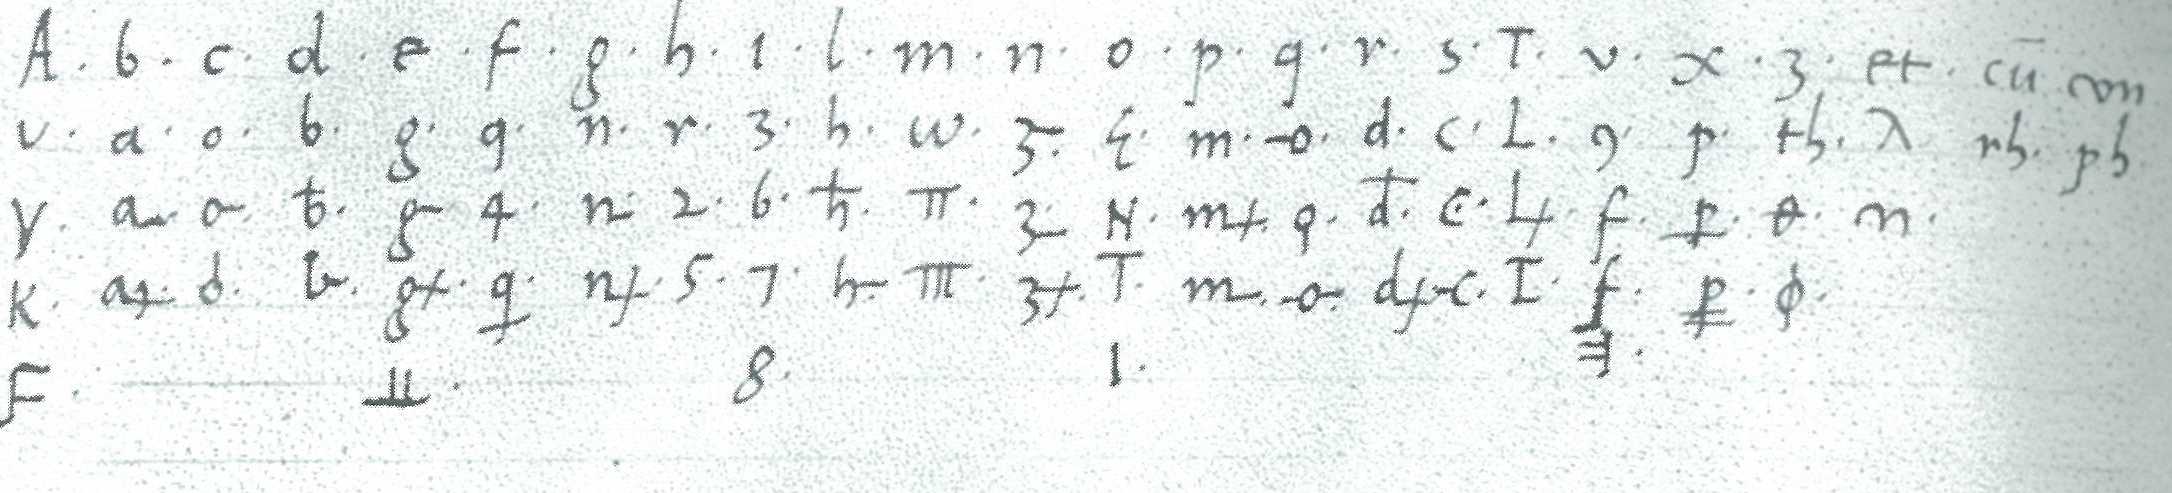 A. b. c. d. e. f. g. h. 1. l. m. n. o. p. q. r. s. T. v. x. 3. et. cū con
v. a. o. b. g. q. n. r. 3. h. w. 3. m. o. d. c. L. 9. p. th. λ rh. ph
y. a. o. b. g. 4. n. 2. 6. h. π. 3. N. m+. q. d. c. L+. f. p. θ. m.
K. a. d. b. g+. q. n+. 5. 7. h. 3+. T. m. o. d+. c. I. f. p. φ.
F. 8. 1.